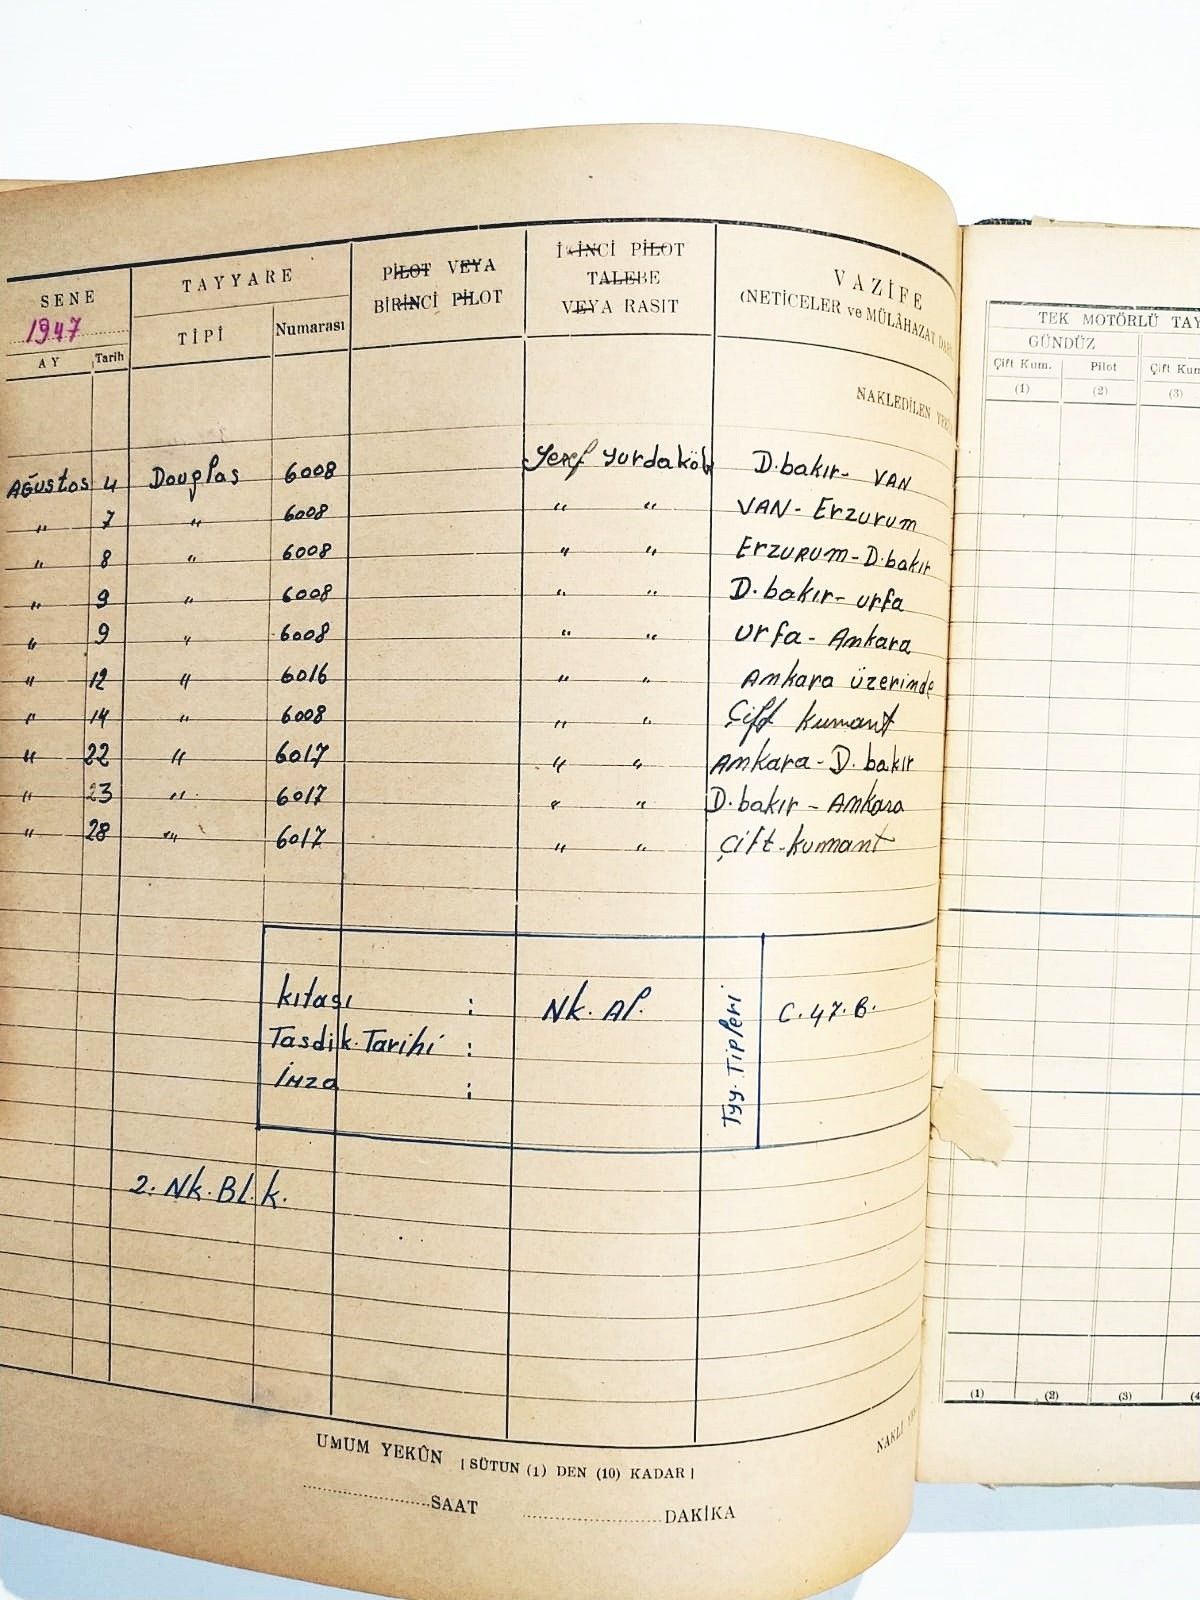 SENE
1947
AY Tarih
TAYYARE
TİPİ Numarası
PİLOT VEYA
BİRİNCİ PİLOT
İKİNCİ PİLOT
TALEBE
VEYA RASIT
VAZİFE
(NETİCELER ve MÜLÂHAZAT
NAKLEDİLEN
Ağustos 4 Douglas 6008 Yurdakök D.bakır- VAN
" 7 " 6008 " " VAN- Erzurum
" 8 " 6008 " " Erzurum-D.bakır
" 9 " 6008 " " D.bakır- urfa
" 9 " 6008 " " urfa- Ankara
" 12 " 6016 " " Ankara üzerinde
" 14 " 6008 " " Çift kumant
" 22 " 6017 " " Ankara- D.bakır
" 23 " 6017 " " D.bakır - Ankara
" 28 " 6017 " " Çift-kumant
kıtası : Nk. Al.
Tasdik. Tarihi :
İmza :
Tyy. Tipleri
C.47.B.
2. Nk. Bl. k.
UMUM YEKÛN [SÜTUN (1) DEN (10) KADAR]
SAAT DAKİKA
TEK MOTÖRLÜ TAY
GÜNDÜZ
Çift Kum. Pilot Çift Kum
(1) (2) (3)
(1) (2) (3) (4
NAKLİ